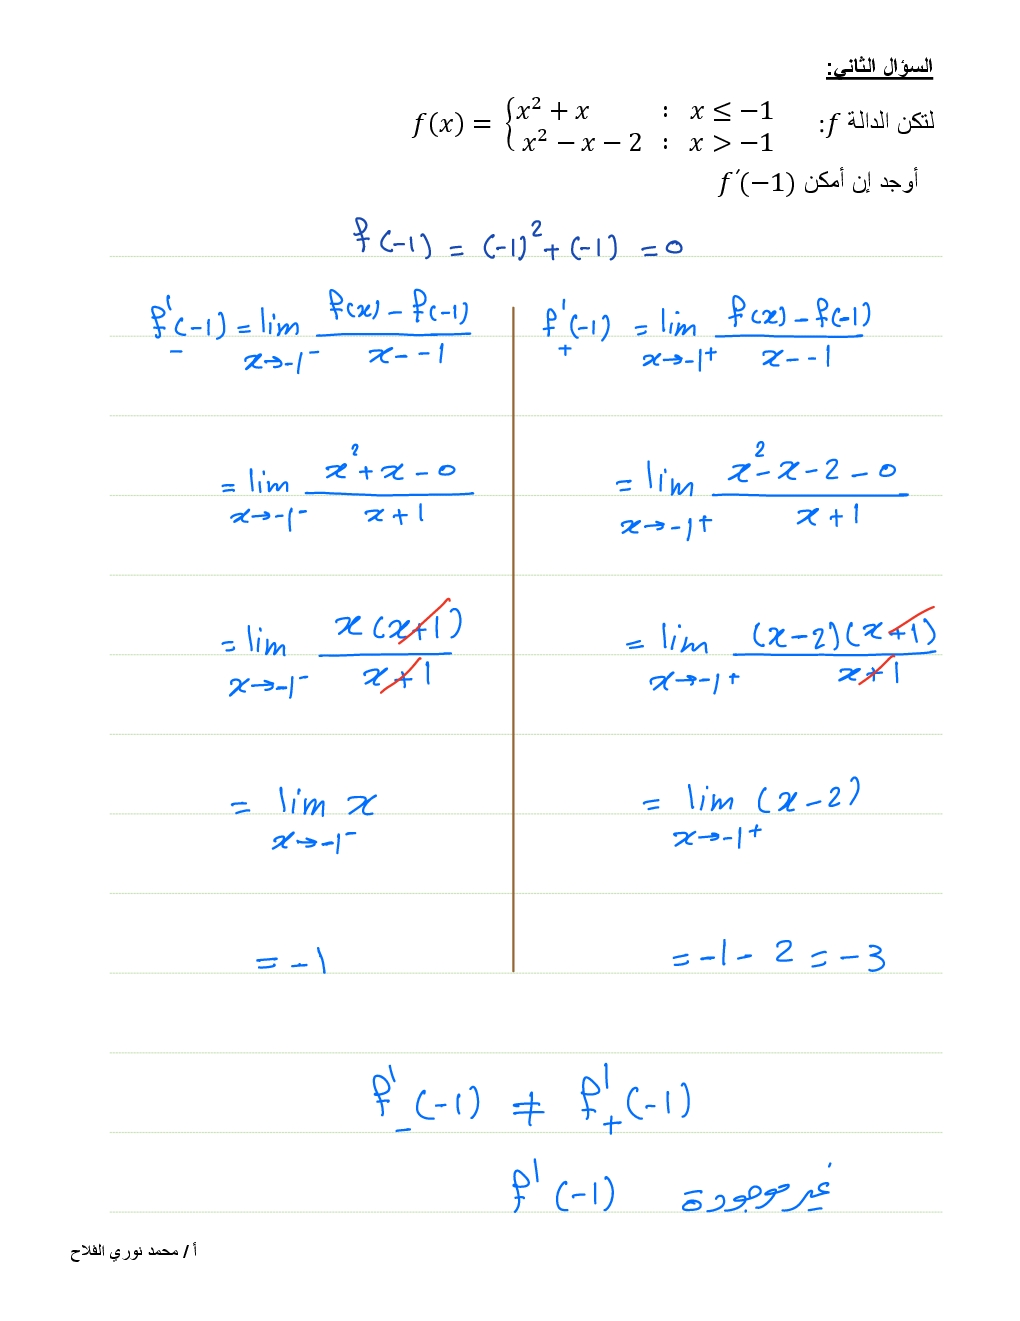 السؤال الثاني:
لتكن الدالة f: f(x) = { x² + x : x ≤ −1
x² − x − 2 : x > −1
أوجد إن أمكن f′(−1)
f(-1) = (-1)² + (-1) = 0
f'₋(-1) = lim x→-1⁻ (f(x) - f(-1)) / (x - -1)
f'₊(-1) = lim x→-1⁺ (f(x) - f(-1)) / (x - -1)
= lim x→-1⁻ (x² + x - 0) / (x + 1)
= lim x→-1⁺ (x² - x - 2 - 0) / (x + 1)
= lim x→-1⁻ x(x+1) / (x+1)
= lim x→-1⁺ (x-2)(x+1) / (x+1)
= lim x→-1⁻ x
= lim x→-1⁺ (x-2)
= -1
= -1 - 2 = -3
f'₋(-1) ≠ f'₊(-1)
f'(-1) غير موجودة
أ / محمد نوري الفلاح